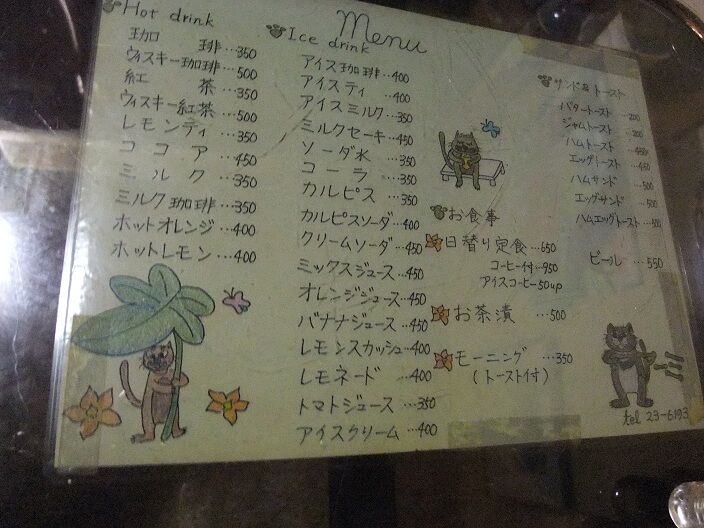 Menu
Hot drink
珈琲…350
ウィスキー珈琲…500
紅茶…350
ウィスキー紅茶…500
レモンティ…350
ココア…450
ミルク…350
ミルク珈琲…350
ホットオレンジ…400
ホットレモン…400
Ice drink
アイス珈琲…400
アイスティ…400
アイスミルク…350
ミルクセーキ…450
ソーダ水…350
コーラ…350
カルピス…350
カルピスソーダ…400
クリームソーダ…450
ミックスジュース…450
オレンジジュース…450
バナナジュース…450
レモンスカッシュ…400
レモネード…400
トマトジュース…350
アイスクリーム…400
お食事
日替り定食…650
コーヒー付…950
アイスコーヒー50up
お茶漬…500
モーニング…350
(トースト付)
サンド&トースト
バタートースト…200
ジャムトースト…200
ハムトースト…450
エッグトースト…450
ハムサンド…500
エッグサンド…500
ハムエッグトースト…500
ビール…550
tel 23-6193